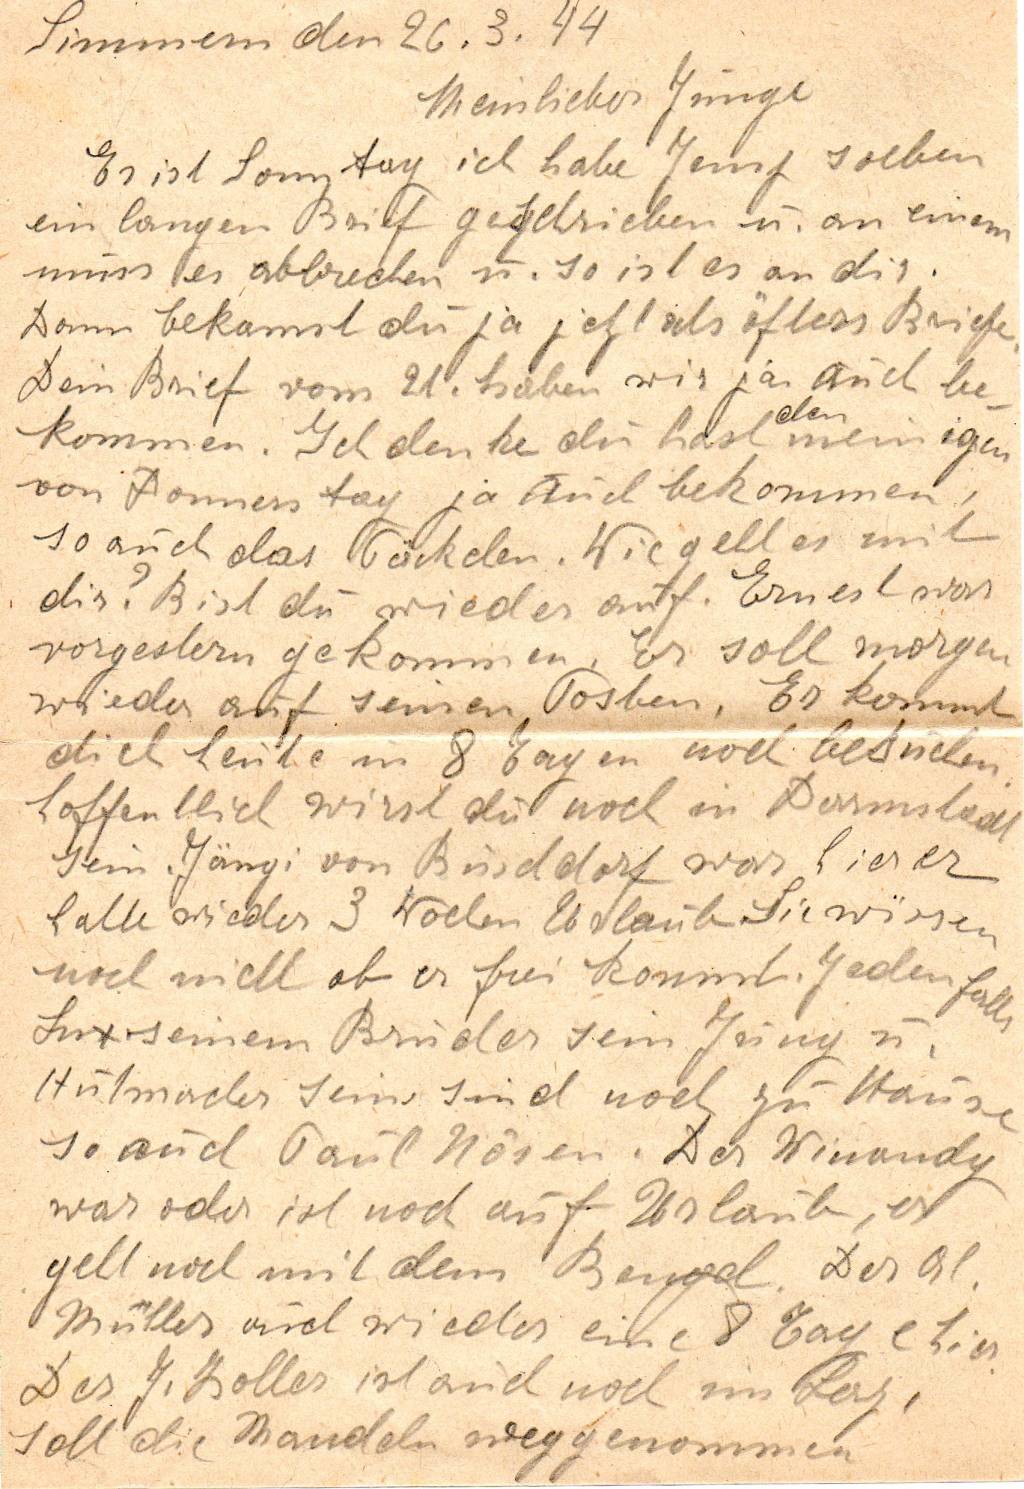 Simmern den 26. 3. 44
Mein lieber Junge
Es ist Sonntag ich habe Jemp soeben
ein langen Brief geschrieben u. an einem
muss er abbrechen u. so ist es an dir.
Dann bekamst du ja jetzt als öfters Briefe.
Dein Brief vom 21. haben wir ja auch be-
kommen. Ich denke du hast den meinigen
von Donnerstag ja auch bekommen,
so auch das Päckchen. Wie geht es mit
dir? Bist du wieder auf. Ernest war
vorgestern gekommen. Er soll morgen
wieder auf seinen Posten. Er kommt
dich heute in 8 Tagen noch besuchen.
hoffentlich wirst du noch in Darmstadt
sein. Jängi von Buschdorf war hier er
hatte wieder 3 Wochen Urlaub. Sie wissen
noch nicht ob er frei kommt. Jedenfalls
seinem Bruder sein Jung u.
Hutmacher sein sind noch zu Hause
so auch Paul Nösen. Der Winandy
war oder ist noch auf Urlaub, er
geht noch mit dem Der Al.
Müller auch wieder eine 8 Tage hier.
Der J. Koller ist auch noch im Laz,
soll die Mandeln weggenommen